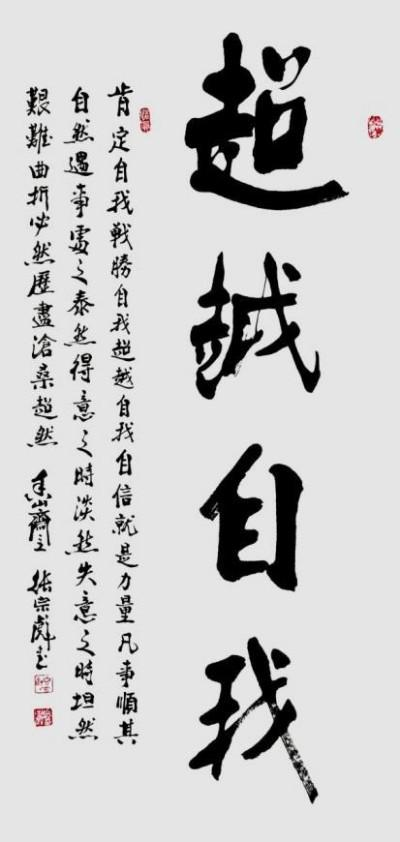 超越自我
肯定自我戰勝自我超越自我自信就是力量凡事順其
自然遇事處之泰然得意之時淡然失意之時坦然
艱難曲折必然歷盡滄桑超然 張宗彪書